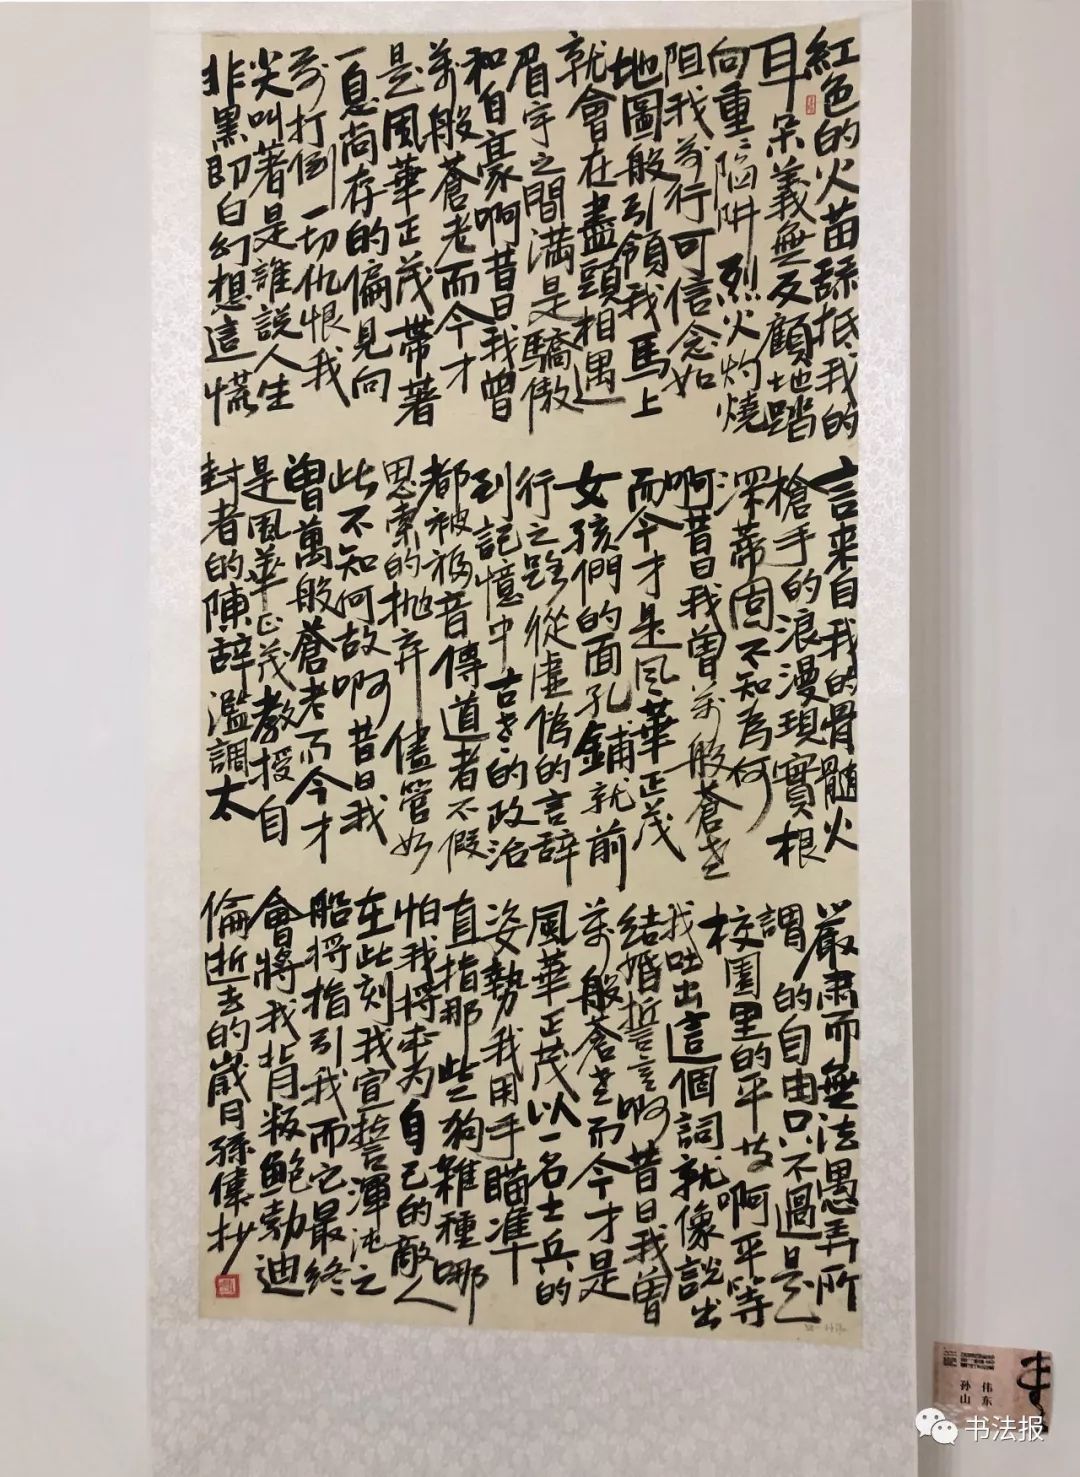 紅色的火苗舔抵我的
耳朵義無反顧地踏
向重〻陷阱烈火灼燒
阻我前行可信念如
地圖般引領我馬上
就會在盡頭相遇
眉宇之間滿是驕傲
和自豪啊昔日我曾
萬般蒼老而今才
是風華正茂帶著
一息尚存的偏見向
前打倒一切仇恨我
尖叫著是誰說人生
非黑即白幻想這慌
言来自我的骨髓火
槍手的浪漫現實根
深蒂固不知為何
啊昔日我曾萬般蒼老
而今才是風華正茂
女孩們的面孔鋪就前
行之路從虛偽的言辭
到記憶中古老的政治
都被福音傳道者不假
思索的抛弃儘管如
此不知何故啊昔日我
曾萬般蒼老而今才
是風華正茂教授自
封者的陳辭濫調太
嚴肅而無法愚弄所
謂的自由只不過是
校園里的平等啊平等
我吐出這個詞就像說出
結婚誓言啊昔日我曾
萬般蒼老而今才是
風華正茂以一名士兵的
姿勢我用手瞄準
直指那些狗雜種哪
怕我將成為自己的敵人
在此刻我宣誓渾沌之
船将指引我而它最終
會將我背叛鮑勃迪
倫逝去的歲月孫偉抄
孙 伟
山 东
书法报